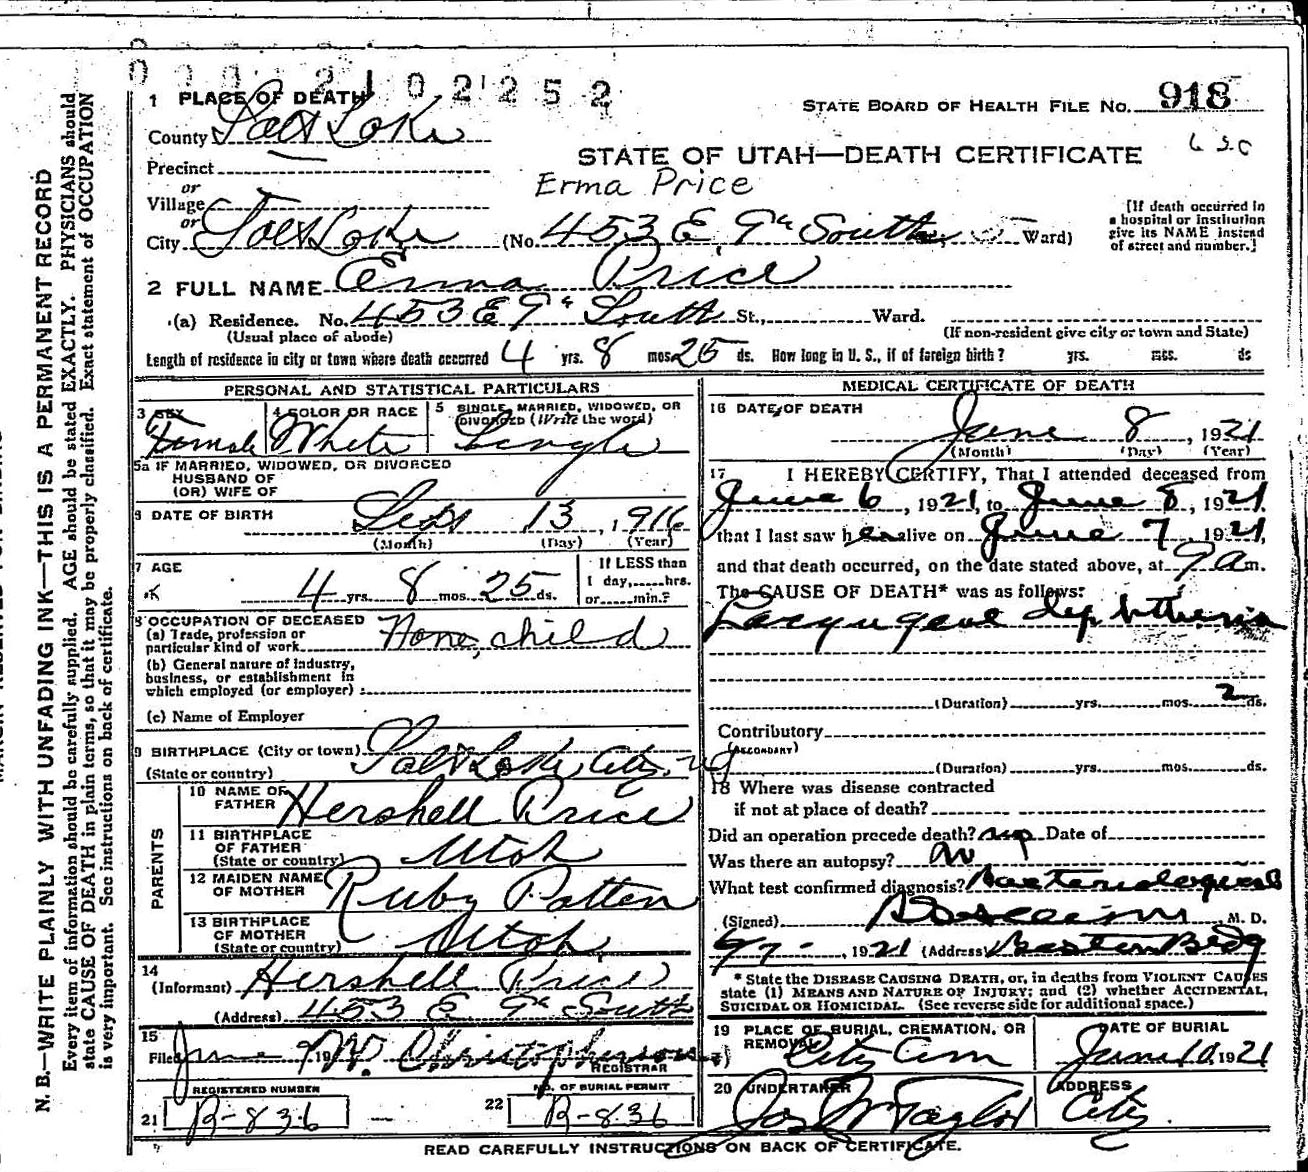 0002102252
1 PLACE OF DEATH
STATE BOARD OF HEALTH FILE No. 918
County Salt Lake
STATE OF UTAH—DEATH CERTIFICATE
Precinct
Erma Price
or
Village
or
City Salt Lake (No. 453 E 9th South 5 Ward)
[If death occurred in
a hospital or institution
give its NAME instead
of street and number.]
2 FULL NAME Erma Price
(a) Residence. No. 453 E 9th South St., Ward.
(Usual place of abode) (If non-resident give city or town and State)
Length of residence in city or town where death occurred 4 yrs. 8 mos. 25 ds. How long in U. S., if of foreign birth? yrs. mos. ds
PERSONAL AND STATISTICAL PARTICULARS
3 SEX
Female
4 COLOR OR RACE
White
5 SINGLE, MARRIED, WIDOWED, OR
DIVORCED (Write the word)
Single
5a IF MARRIED, WIDOWED, OR DIVORCED
HUSBAND OF
(OR) WIFE OF
6 DATE OF BIRTH Sept 13, 1916
(Month) (Day) (Year)
7 AGE
4 yrs. 8 mos. 25 ds.
If LESS than
1 day,.....hrs.
or.....min.?
8 OCCUPATION OF DECEASED
(a) Trade, profession or
particular kind of work None, child
(b) General nature of industry,
business, or establishment in
which employed (or employer)
(c) Name of Employer
9 BIRTHPLACE (City or town) Salt Lake City
(State or country)
PARENTS
10 NAME OF
FATHER Hershell Price
11 BIRTHPLACE
OF FATHER
(State or country) Utah
12 MAIDEN NAME
OF MOTHER Ruby Patten
13 BIRTHPLACE
OF MOTHER
(State or country) Utah
14
(Informant) Hershell Price
(Address) 453 E 9th South
15
Filed June 9 19 W. Christopherson
REGISTRAR
REGISTERED NUMBER
21 B-836
NO. OF BURIAL PERMIT
22 B-836
MEDICAL CERTIFICATE OF DEATH
16 DATE OF DEATH
June 8, 1921
(Month) (Day) (Year)
17 I HEREBY CERTIFY, That I attended deceased from
June 6, 1921, to June 8, 1921,
that I last saw her alive on June 7, 1921,
and that death occurred, on the date stated above, at 9 a m.
The CAUSE OF DEATH* was as follows:
Laryngeal diphtheria
(Duration) yrs. mos. 2 ds.
Contributory
(SECONDARY)
(Duration) yrs. mos. ds.
18 Where was disease contracted
if not at place of death?
Did an operation precede death? no Date of
Was there an autopsy? no
What test confirmed diagnosis? Bacteriological
(Signed) M. D.
1921 (Address) Boston Bldg
* State the DISEASE CAUSING DEATH, or, in deaths from VIOLENT CAUSES
state (1) MEANS AND NATURE OF INJURY; and (2) whether ACCIDENTAL,
SUICIDAL OR HOMICIDAL. (See reverse side for additional space.)
19 PLACE OF BURIAL, CREMATION, OR
REMOVAL City Cem
DATE OF BURIAL
June 10, 1921
20 UNDERTAKER
Jos Wm Taylor
ADDRESS
City
READ CAREFULLY INSTRUCTIONS ON BACK OF CERTIFICATE.
N. B.—WRITE PLAINLY WITH UNFADING INK—THIS IS A PERMANENT RECORD
Every item of information should be carefully supplied. AGE should be stated EXACTLY. PHYSICIANS should
state CAUSE OF DEATH in plain terms, so that it may be properly classified. Exact statement of OCCUPATION
is very important. See instructions on back of certificate.